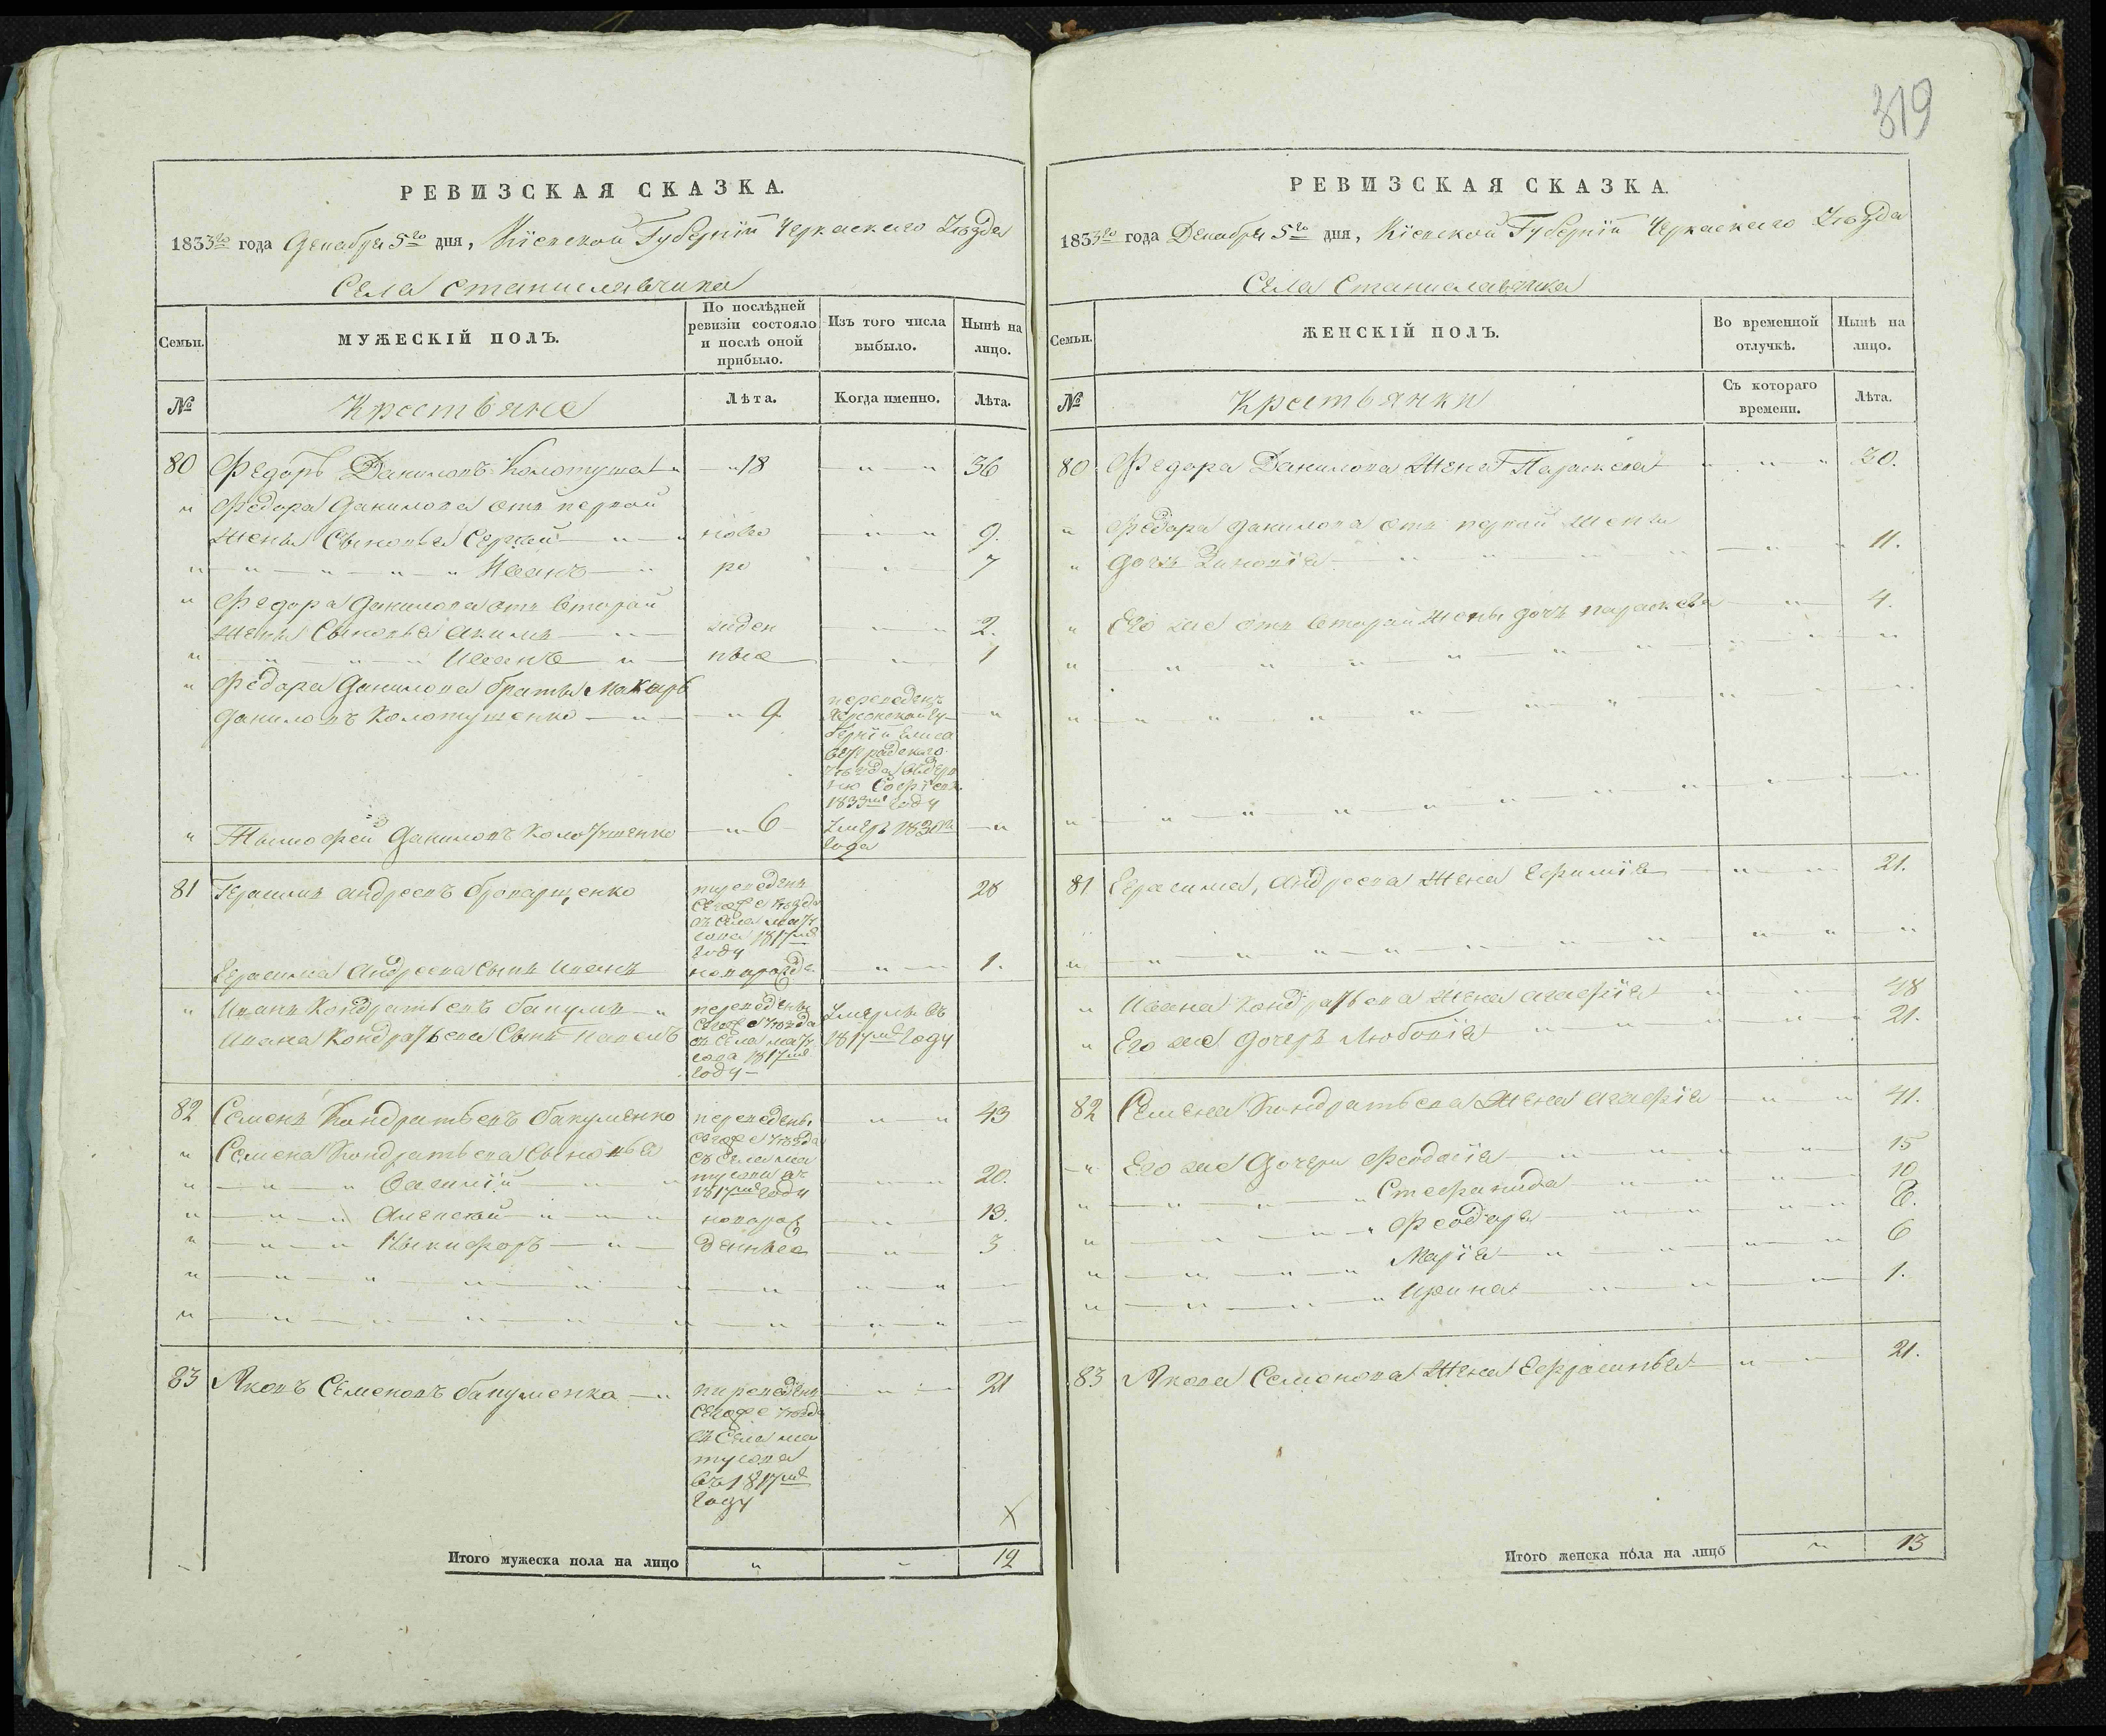 РЕВИЗСКАЯ СКАЗКА.
1833го года Декабря 5го дня, Кіевской Губерніи Черкаскаго Уѣзда
Села Станиславчика
Семьи.
МУЖЕСКІЙ ПОЛЪ.
По послѣдней ревизіи состояло и послѣ оной прибыло.
Изъ того числа выбыло.
Нынѣ на лицо.
№
Крестьяне
Лѣта.
Когда именно.
Лѣта.
80 Федоръ Даниловъ Колотуша " 18 " " 36
" Федора Данилова отъ первой
жены Сыновья Сергей " " ново " " 9.
" " " " " Иванъ " ро " 7
" Федора Данилова отъ второй
жены Сыновья Акимъ " жден " 2.
" " " " Иванъ " ные " 1
" Федора Данилова братья Макаръ
Даниловъ Колотушенко " " 9
переведенъ
Херсонской Гу
берніи Елиса
ветградскаго
Уѣзда
1833м году
"
" Тымофей Даниловъ Колотушенко " 6 Умеръ 1830го "
года
81 Герасимъ Андреевъ Броварченко
переведенъ
сегоже Уѣзда
съ Села Мату
сова 1817м
году
28
Герасима Андреева Сынъ Иванъ новорожде. " 1.
" Иванъ Кондратьевъ Бакумъ " переведены Умерли въ
Ивана Кондратьева Сынъ Павелъ сегоже Уѣзда 1817м году
съ Села Мату
сова 1817м
году
82 Семенъ Кондратьевъ Бакуменко переведены " " 43
" Семена Кондратьева Сыновья сегоже Уѣзда
" " " Василій " съ Села Ма
тусова въ
1817м году " 20.
" " " Алексей " " новорож " 13.
" " " Ныкифоръ " денные " 3
83 Яковъ Семеновъ Бакуменко " переведенъ " 21
сегоже Уѣзда
съ Села Ма
тусова
въ 1817м
году
X
Итого мужеска пола на лицо " " 12
319
РЕВИЗСКАЯ СКАЗКА.
1833го года Декабря 5го дня, Кіевской Губерніи Черкаскаго Уѣзда
Села Станиславчика
Семьи.
ЖЕНСКІЙ ПОЛЪ.
Во временной отлучкѣ.
Нынѣ на лицо.
№
Крестьянки
Съ котораго времени.
Лѣта.
80 Федора Данилова Жена Параскева " " " 30.
" Федора Данилова отъ первой жены
" дочь Зиновія " " 11.
" Его же отъ второй жены дочь Параскева " 4.
81 Герасима Андреева Жена Ефимія " " 21.
" Ивана Кондратьева Жена Агафія " " 48
" Его же дочерь Любовія " " 21.
82 Семена Кондратьева Жена Агафія " " 41.
" Его же Дочери Феодосія " " 15
" " " Стефанида " " 10
" " " Феодора " " 8.
" " " Марія " " 6
" " " Ирина " " 1.
83 Якова Семенова Жена Ефросинья " 21.
Итого женска пола на лицо " 13